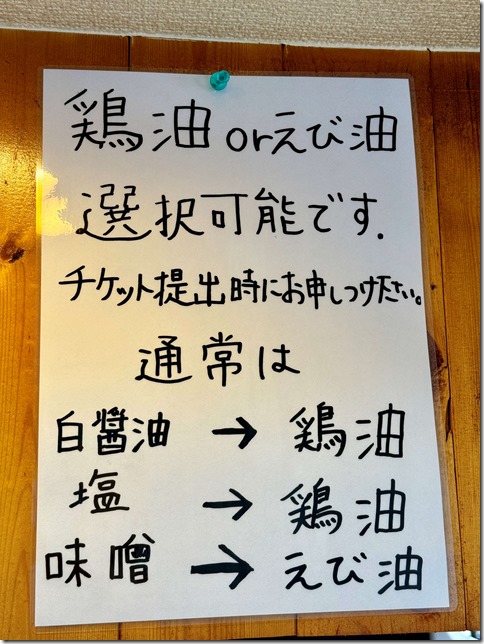 鶏油orえび油
選択可能です.
チケット提出時にお申しつけ下さい。
通常は
白醤油 → 鶏油
塩 → 鶏油
味噌 → えび油